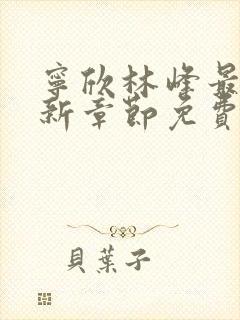 寧欣林峰最
新章節免費
貝葉子